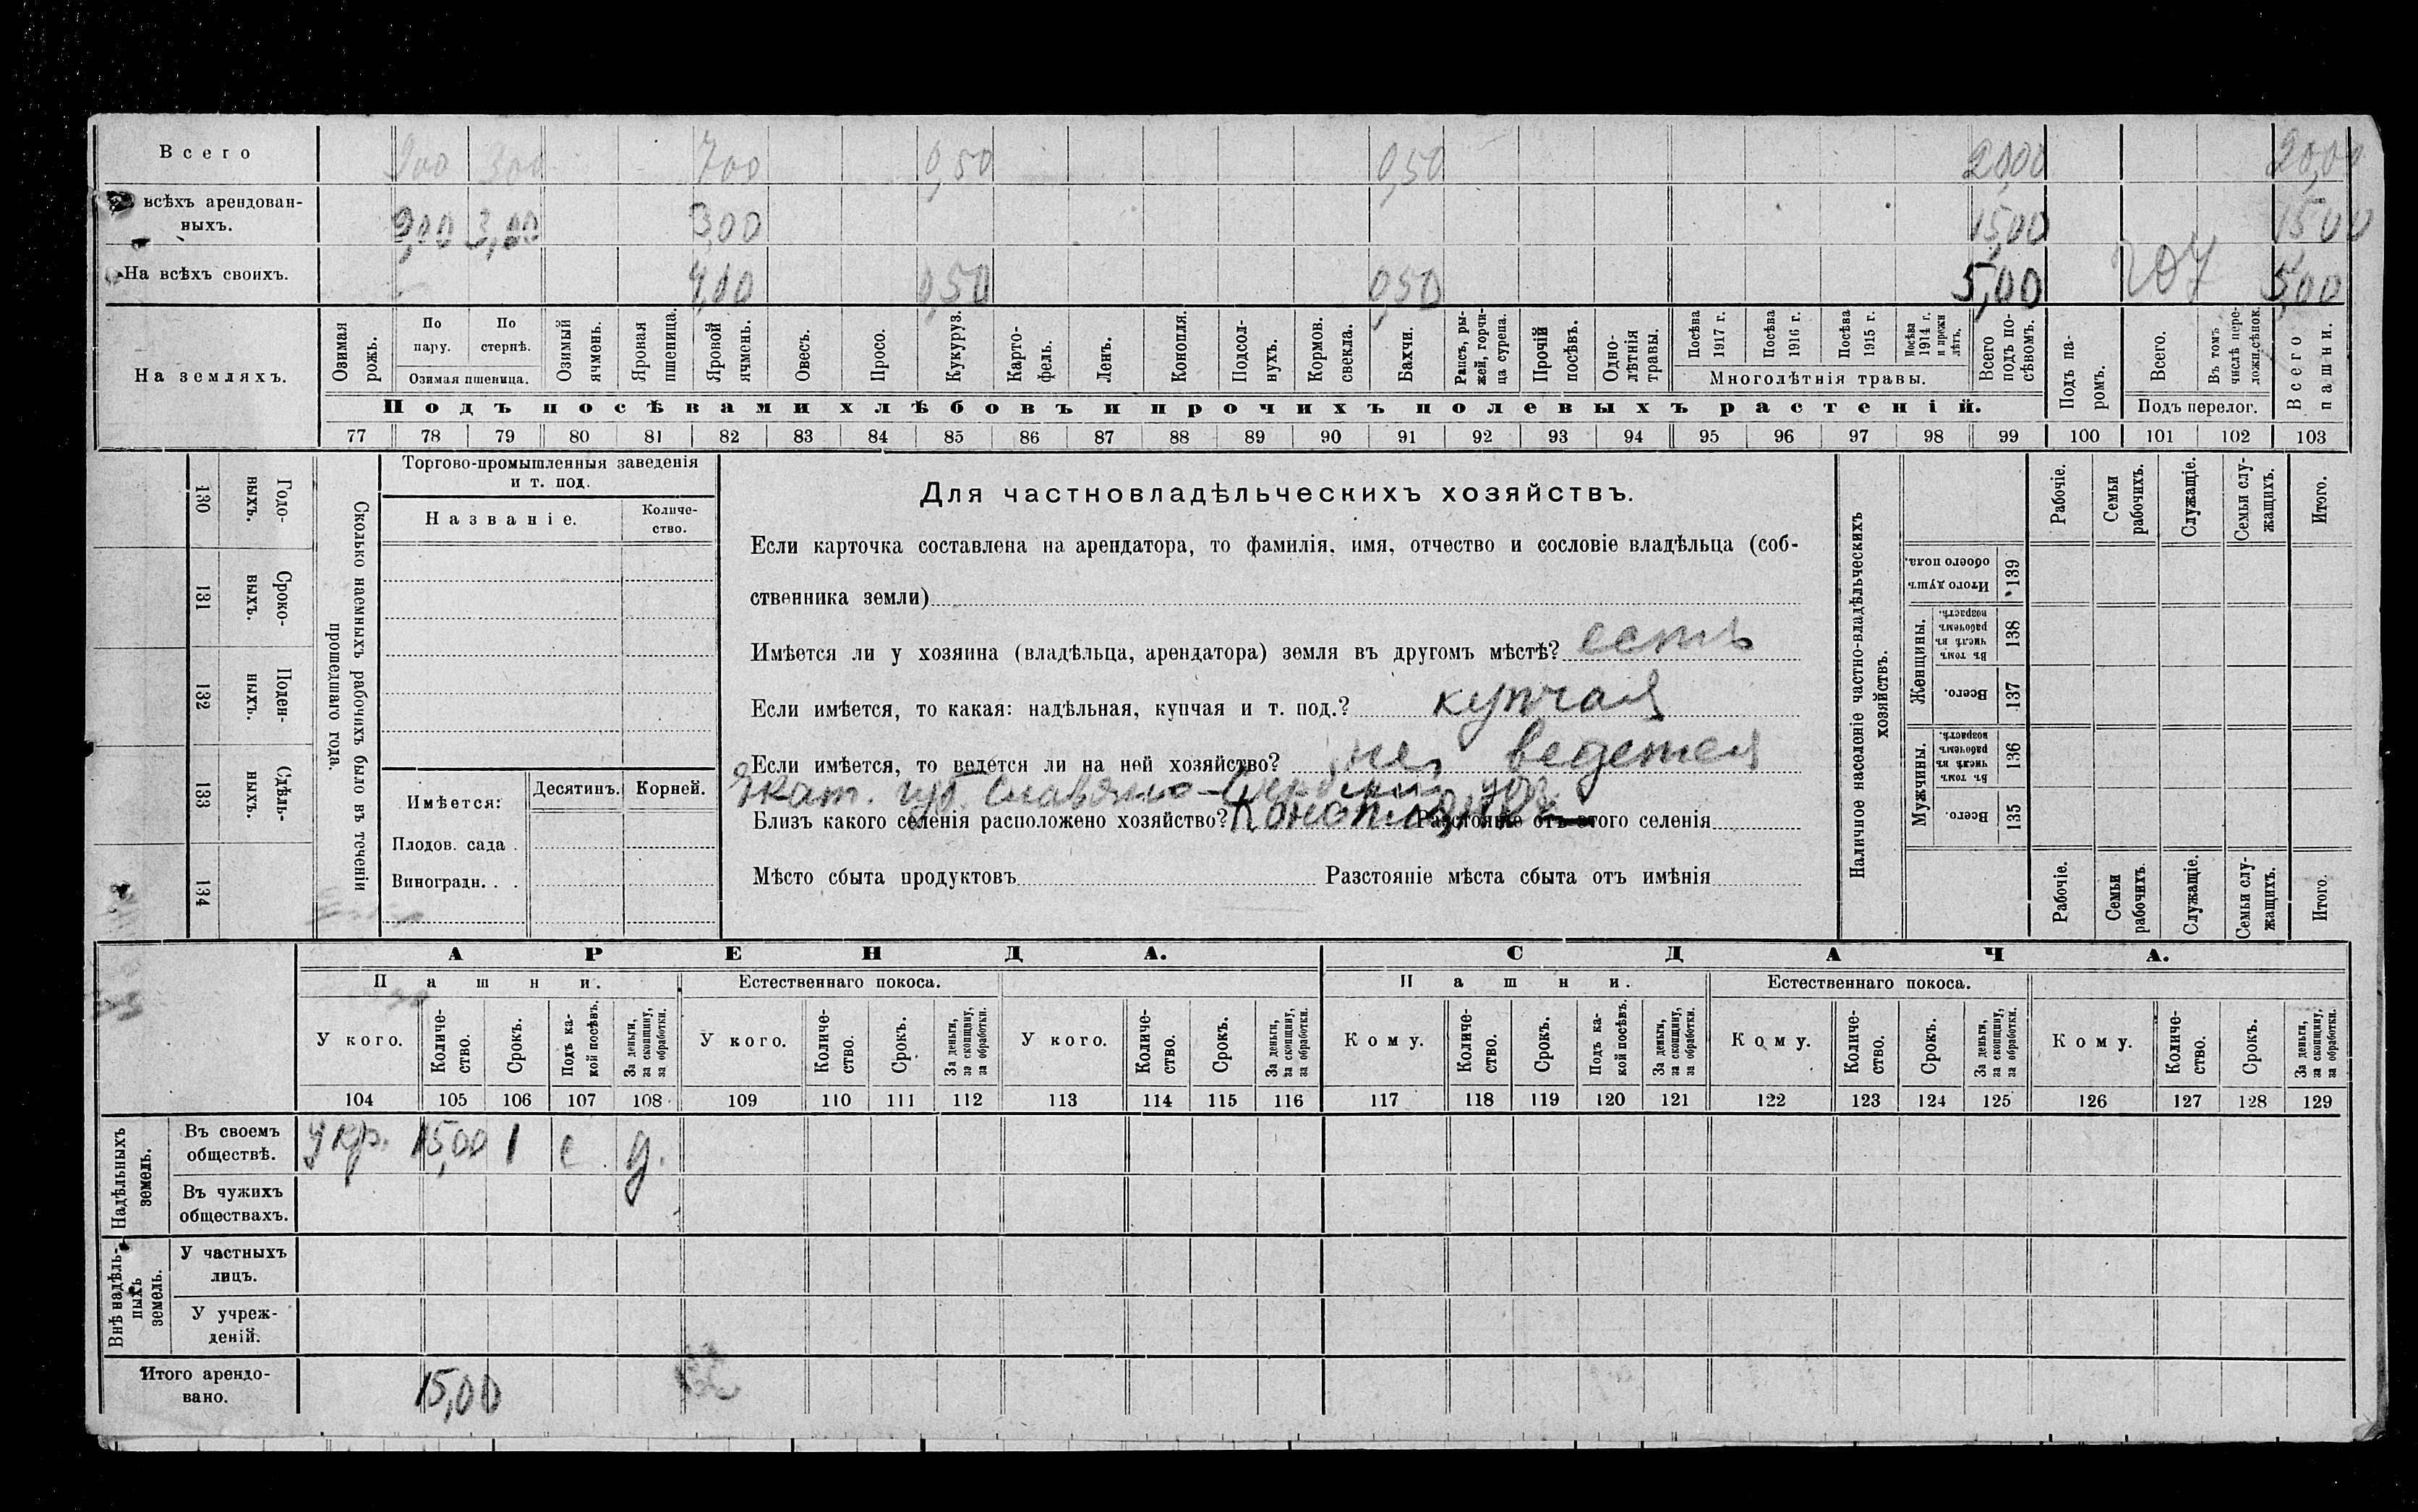 Всего 900 300 700 0,50 0,50 20,00 20,00
всѣхъ арендован-
ныхъ. 9,00 3,00 3,00 15,00 15 00
На всѣхъ своихъ. 4,00 0,50 0,50 5,00 207 5,00
На земляхъ.
Озимая рожь.
По пару.
По стернѣ.
Озимая пшеница.
Озимый ячмень.
Яровая пшеница.
Яровой ячмень.
Овесъ.
Просо.
Кукуруз.
Карто-
фель.
Ленъ.
Конопля.
Подсол-
нухъ.
Кормов. свекла.
Бахчи.
Рапсъ, ры-
жей, горчи-
ца сурепа.
Прочій посѣвъ.
Одно-
лѣтнія травы.
Посѣва 1917 г.
Посѣва 1916 г.
Посѣва 1915 г.
Посѣва 1914 г. и прежн лѣтъ.
Многолѣтнія травы.
Всего подъ по-
сѣвомъ.
Подъ па-
ромъ.
Всего.
Въ томъ числѣ пере-
ложн.сѣнок.
Подъ перелог.
Всего пашни.
Подъ посѣвами хлѣбовъ и прочихъ полевыхъ растеній.
77 78 79 80 81 82 83 84 85 86 87 88 89 90 91 92 93 94 95 96 97 98 99 100 101 102 103
Сколько наемныхъ рабочихъ было въ теченіи
прошедшаго года.
Годо-
выхъ.
130
Сроко-
выхъ.
131
Поден-
ныхъ.
132
Сдѣль-
ныхъ.
133
134
Торгово-промышленныя заведенія
и т. под.
Названіе.
Количе-
ство.
Имѣется: Десятинъ. Корней.
Плодов. сада .
Виноградн. . .
Для частновладѣльческихъ хозяйствъ.
Если карточка составлена на арендатора, то фамилія, имя, отчество и сословіе владѣльца (соб-
ственника земли)
Имѣется ли у хозяина (владѣльца, арендатора) земля въ другомъ мѣстѣ? есть
Если имѣется, то какая: надѣльная, купчая и т. под.? купчая
Если имѣется, то ведется ли на ней хозяйство? не ведется
Екат. губ. Славяно-Сербский уѣз.
Близъ какого селенія расположено хозяйство? Разстояніе отъ этого селенія
Мѣсто сбыта продуктовъ Разстояніе мѣста сбыта отъ имѣнія
Наличное населеніе частно-владѣльческихъ
хозяйствъ.
Рабочіе.
Семьи рабочихъ.
Служащіе.
Семьи слу-
жащихъ.
Итого.
Итого душъ обоего пола.
139
Женщины.
Въ томъ числѣ въ рабочемъ возрастѣ.
138
Всего.
137
Мужчины.
Въ томъ числѣ въ рабочемъ возрастѣ.
136
Всего.
135
Рабочіе.
Семьи рабочихъ
Служащіе.
Семьи слу-
жащихъ.
Итого.
АРЕНДА. СДАЧА.
Пашни. Естественнаго покоса. Пашни. Естественнаго покоса.
У кого.
Количе-
ство.
Срокъ.
Подъ ка-
кой посѣвъ.
За деньги,
за скопщину,
за обработки.
У кого.
Количе-
ство.
Срокъ.
За деньги,
за скопщину,
за обработки.
У кого.
Количе-
ство.
Срокъ.
За деньги,
за скопщину,
за обработки.
Кому.
Количе-
ство.
Срокъ.
Подъ ка-
кой посѣвъ.
За деньги,
за скопщину,
за обработки.
Кому.
Количе-
ство.
Срокъ.
За деньги,
за скопщину,
за обработки.
Кому.
Количе-
ство.
Срокъ.
За деньги,
за скопщину,
за обработки.
104 105 106 107 108 109 110 111 112 113 114 115 116 117 118 119 120 121 122 123 124 125 126 127 128 129
Надѣльныхъ
земель.
Въ своемъ
обществѣ. у кр. 15,00 1 с д.
Въ чужихъ
обществахъ.
Внѣ надѣль-
ныхъ
земель.
У частныхъ
лицъ.
У учреж-
деній.
Итого арендо-
вано. 15,00